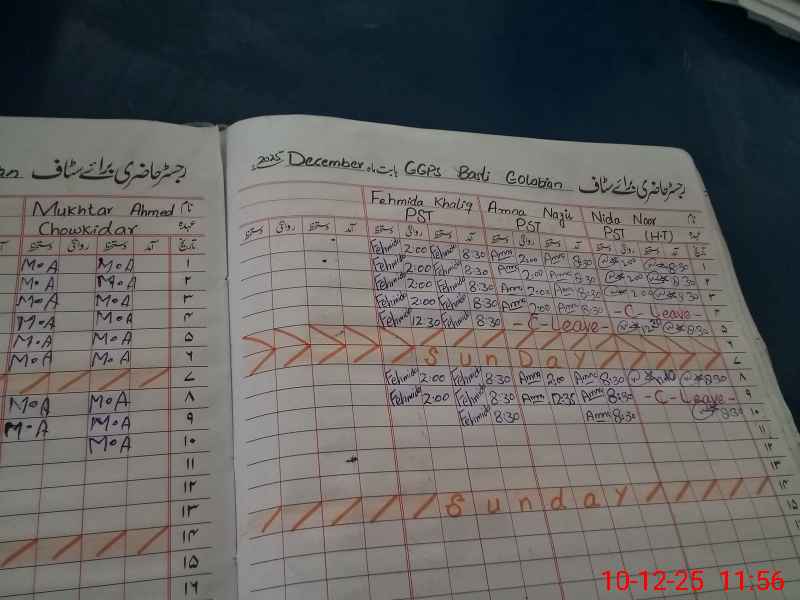 رجسٹر حاضری برائے سٹاف
Mukhtar Ahmed نام
Chowkidar عہدہ
تاریخ آمد دستخط روانگی دستخط
M.A M.A ۱
M.A M.A ۲
M.A M.A ۳
M.A M.A ۴
M.A M.A ۵
M.A M.A ۶
۷
M.A M.A ۸
M.A M.A ۹
M.A ۱۰
۱۱
۱۲
۱۳
۱۴
۱۵
۱۶
رجسٹر حاضری برائے سٹاف GGPS Basti Golabian بابت ماہ December 2025ء
Fehmida Khaliq Amna Nazir Nida Noor نام
PST PST PST (H.T) عہدہ
تاریخ آمد دستخط روانگی دستخط آمد دستخط روانگی دستخط آمد دستخط روانگی دستخط آمد دستخط روانگی دستخط
Fehmida 2:00 Fehmida 8:30 Amna 2:00 Amna 8:30 2:00 8:30 ۱
Fehmida 2:00 Fehmida 8:30 Amna 2:00 Amna 8:30 2:00 8:30 ۲
Fehmida 2:00 Fehmida 8:30 Amna 2:00 Amna 8:30 2:00 8:30 ۳
Fehmida 2:00 Fehmida 8:30 Amna 2:00 Amna 8:30 - C - Leave - ۴
Fehmida 12:30 Fehmida 8:30 - C - Leave - 8:30 ۵
۶
Sunday ۷
Fehmida 2:00 Fehmida 8:30 Amna 2:00 Amna 8:30 8:30 ۸
Fehmida 2:00 Fehmida 8:30 Amna 12:35 Amna 8:30 - C - Leave - ۹
Fehmida 8:30 Amna 8:30 8:30 ۱۰
۱۱
۱۲
۱۳
Sunday ۱۴
۱۵
10-12-25 11:56